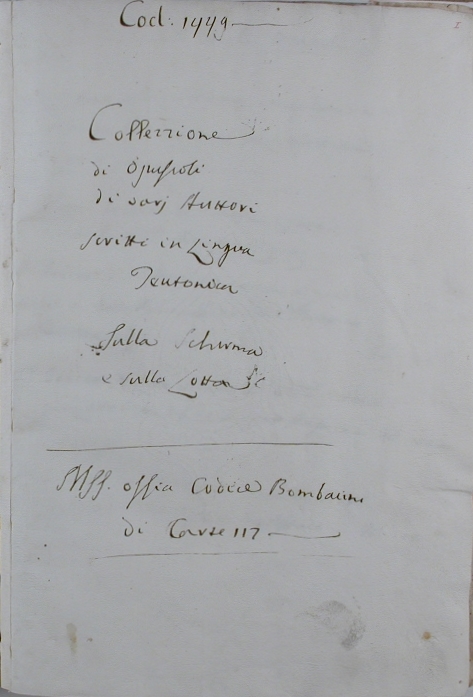 Cod: 1449
1
Collezzione
di Opuscoli
di varj Auttori
scritti in Lingua
Teutonica
Sulla Scherma
e sulla Lotta &c
MSS. ossia Codice Bombacino
di Carte 117